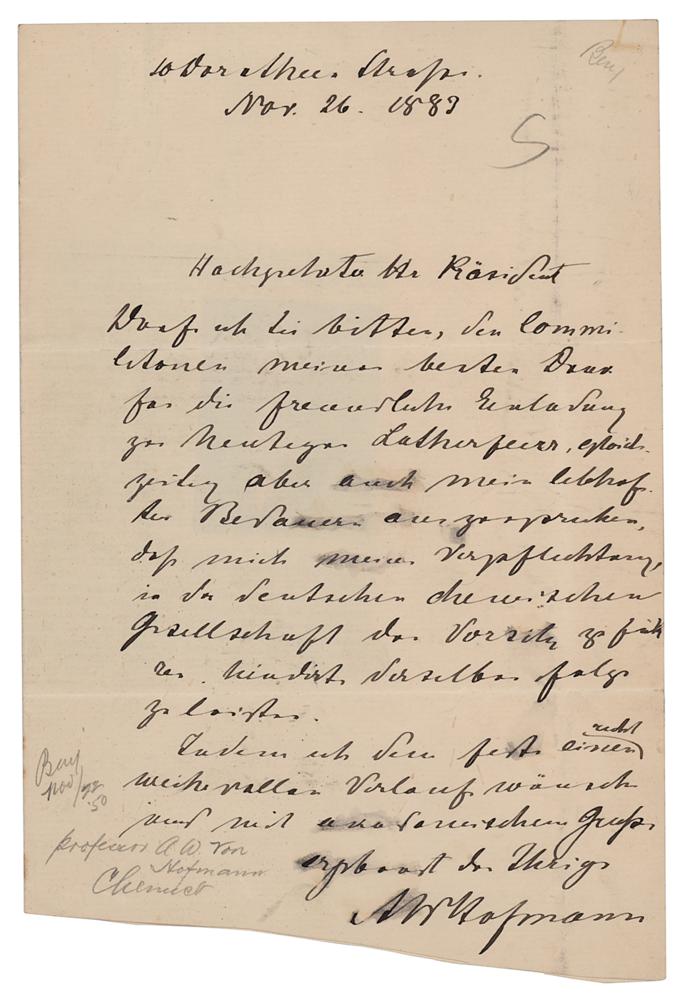 10 Dorotheen Strasse.
Nov. 26. 1883
Bey
5
Hochgeehrter Hr Präsident
Darf ich Sie bitten, den Commi-
litonen meinen besten Dank
für die freundliche Einladung
zur heutigen Lutherfeier, gleich-
zeitig aber auch mein lebhaf-
tes Bedauern auszusprechen,
daß mich meine Verpflichtung,
in der deutschen chemischen
Gesellschaft den Vorsitz zu füh
ren, hindert derselben folge
zu leisten.
Indem ich dem feste einen recht
weihevollen Verlauf wünsche
und mit academischem Gruße
ergebenst der Ihrige
AWHofmann
Nov/92
.50
Professor A. W. von
Hofmann
Chemist